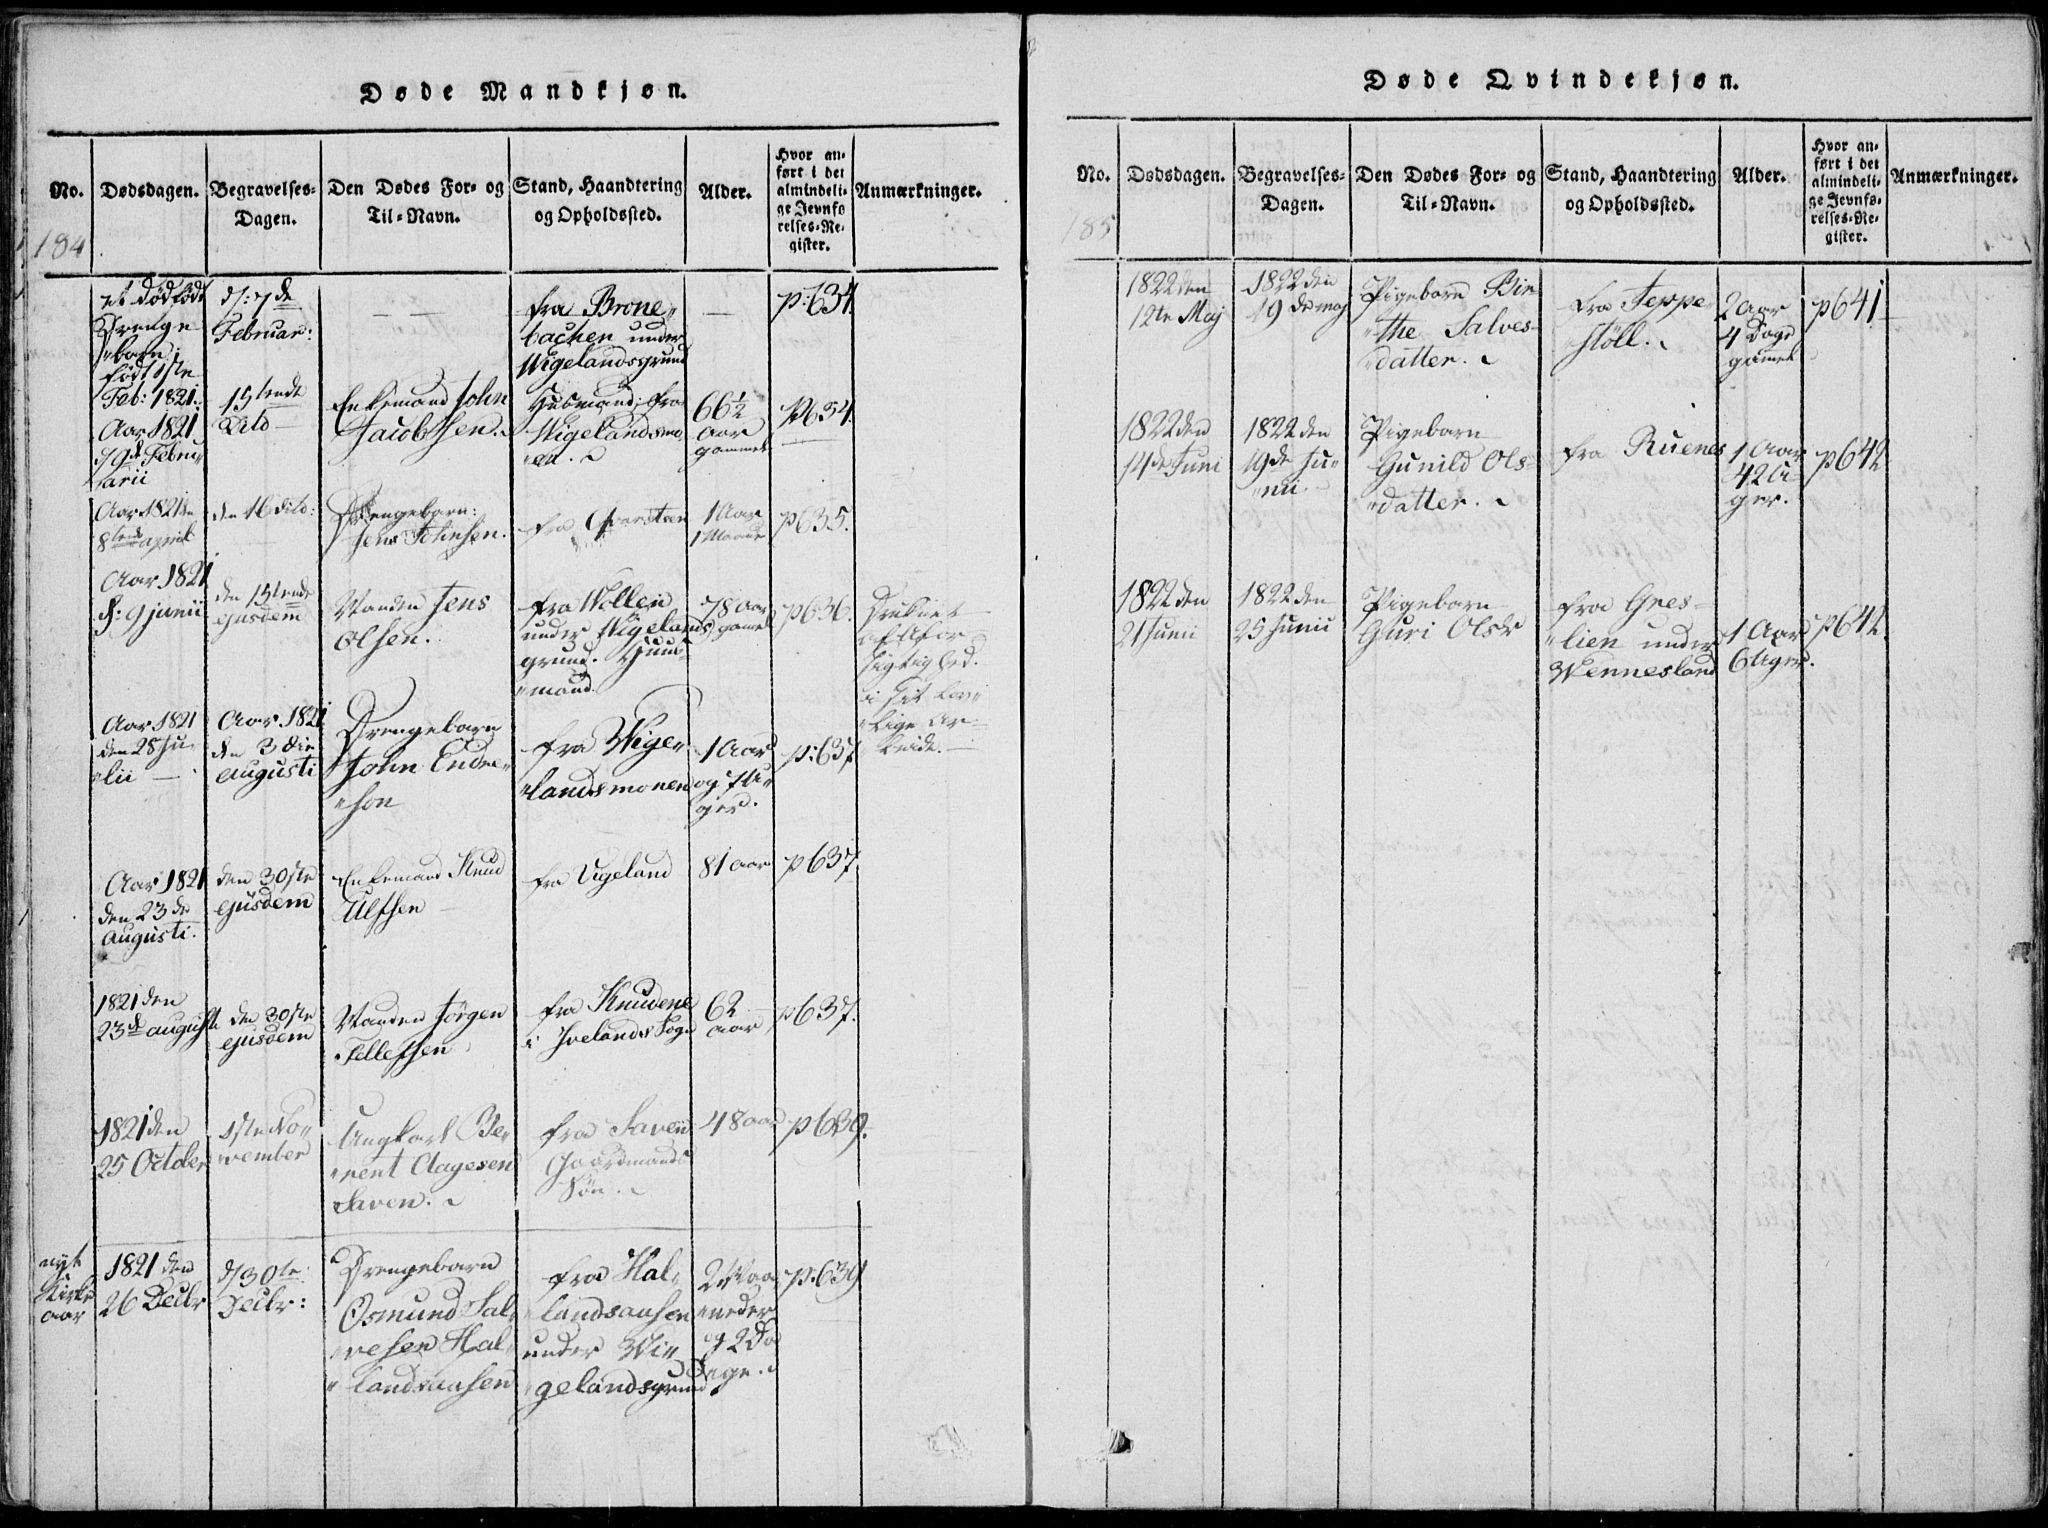 Døde Mandkjøn.
No.
Dødsdagen.
Begravelses-
Dagen.
Den Dødes For- og
Til-Navn.
Stand, Haandtering
og Opholdssted.
Alder.
Hvor an-
ført i det
almindeli-
ge Jevnfø
relses-Re-
gister.
Anmærkninger.
184
et dødfødt
Drenge
"barn
født 1ste
Feb: 1821.
d: 7de
Februar:
— —
fra Brone„
bachen under
Wigelandsgrund
—
p: 634
Aar 1821
d 9de Febru„
arii
15tende
Dito
Enkemand John
Jacobsen.
Huusmand; fra
Wigelandsmo„
en.
66½
aar
gammel
p634.
Aar 1821 den
8tende april
den 16 dito:
Drengebarn:
Jens Johnsen.
fra
1 Aar
1 Maaned
p635.
Aar 1821
d: 9 junii
den 15tende
ejusdem
Manden Jens
Olsen.
fra Mollen
under Wigelands
grund. Huus-
„mand.
78 aar
gamel
p636.
Druknet
af Ufor„
sigtighed.
i sit lov„
„lige Ar-
beide. —
Aar 1821
den 28 Ju„
„lii —
Aar 1821
den 3die
augusti
Drengebarn
John Endre„
„son
fra Wige„
„landsmonen
1 Aar
og 7 U„
ger.
p: 637
Aar 1821
den 23de
augusti.
den 30ste
ejusdem
Enkemand Knud
Ulfsen —
fra Vigeland
81 aar
p637.
1821 den
23de augusti
den 30ste
ejusdem
Manden Jørgen
Tellefsen
fra Knudene
i Ivelands Sogn
62
aar
p637.
1821 den
25 October
1ste No„
vember
Ungkarl Be„
„rent Aagesen
Saven.
fra Saven
Gaardmands
Søn.
48 aar
p639.
nyt
Kirke
aar
1821 den
26 Decbr
d 30te
Decbr:
Drengebarn
Osmund Sal„
„vesen Hal„
„landsaasen
fra Hal„
„landsaasen
under Wi„
„gelandsgrund
2 Maa„
„neder
og 2 Da
„ge.
p: 639
Døde Qvindekjøn.
No.
Dødsdagen.
Begravelses-
Dagen.
Den Dødes For- og
Til-Navn.
Stand, Haandtering
og Opholdssted.
Alder.
Hvor an-
ført i det
almindeli-
ge Jevnfø-
relses-Re-
gister.
Anmærkninger.
185
1822 den
12te Maj
1822 den
19de maj
Pigebarn Bir
„the Salves-
„datter.
fra Jeppe
„støll.
2 Aar
4 Dage
gamel
p641
1822 den
14de Juni
1822 den
19de Ju-
„nii.
Pigebarn
Gunild Ols-
„datter.
fra Ruenes
1 Aar
42 U
ger.
p642
1822 den
21 Junii
1822 den
25 Junii
Pigebarn
Guri Olsdr
fra Gres-
„lien under
Wennesland
1 Aar
6 Uger.
p642